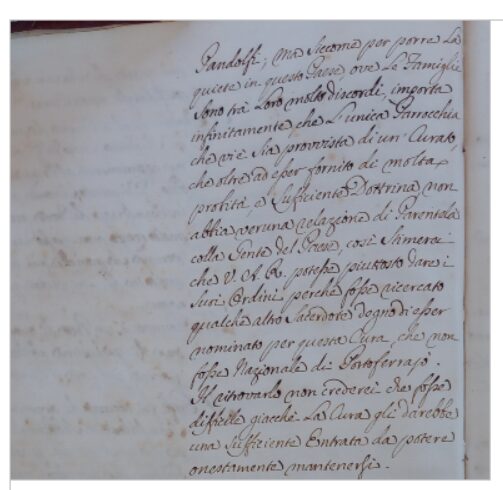 Pandolfi; ma siccome per porre la
quiete in questo Paese, ove le Famiglie
sono trà loro molto discordi, importa
infinitamente che l'unica Parrocchia
che vi è sia provvista di un Curato,
che oltre ad esser fornito di molta
probità, e sufficiente Dottrina, non
abbia veruna relazione di Parentela
colla Gente del Paese, così stimerei
che V. A. R. potesse piuttosto dare i
suoi Ordini perche fosse ricercato
qualche altro Sacerdote degno di esser
nominato per questa Cura, che non
fosse Nazionale di Portoferrajo.
Il ritrovarlo non crederei che fosse
difficile giacchè la Cura gli darebbe
una sufficiente Entrata da potere
onestamente mantenersi.